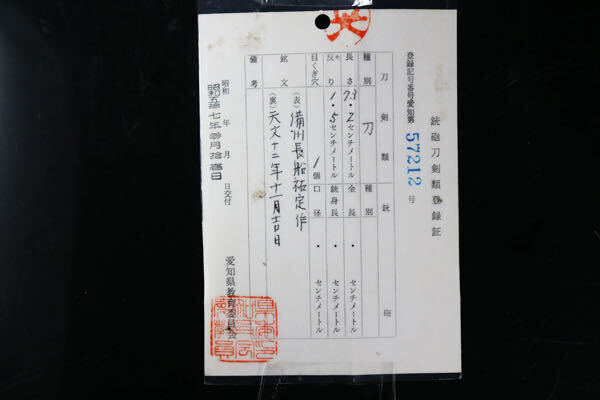 銃砲刀剣類登録証
登録記号番号愛知第 57212 号
刀剣類
銃砲
種別 刀
種別
長さ 73・2センチメートル
全長 ・ センチメートル
反り 1・5センチメートル
銃身長 ・ センチメートル
目くぎ穴 1個
口径 ・ センチメートル
銘文
(表) 備州長船祐定作
(裏) 天文十二年十一月吉日
備考
昭和 年 月 日交付
愛知県教育委員会